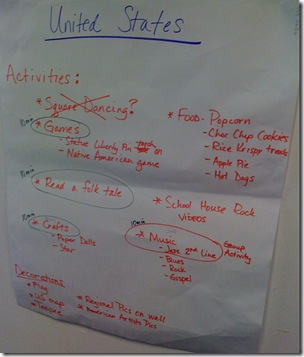 United States
Activities:
* Square Dancing?
10min
* Games
- Statue Liberty Pin torch on
- Native American game
* Food - Popcorn
- Choc Chip Cookies
- Rice Krispy treats
- Apple Pie
- Hot Dogs
10min
* Read a folk tale
* School House Rock
videos
10min
* Crafts
- Paper Dolls
- Star
10min
* Music
- Jazz 2nd Line
- Blues
- Rock
- Gospel
Group
Activity
Decorations
* Flag
* US map
* Teepee
* Regional Pics on wall
* American Artists Pics